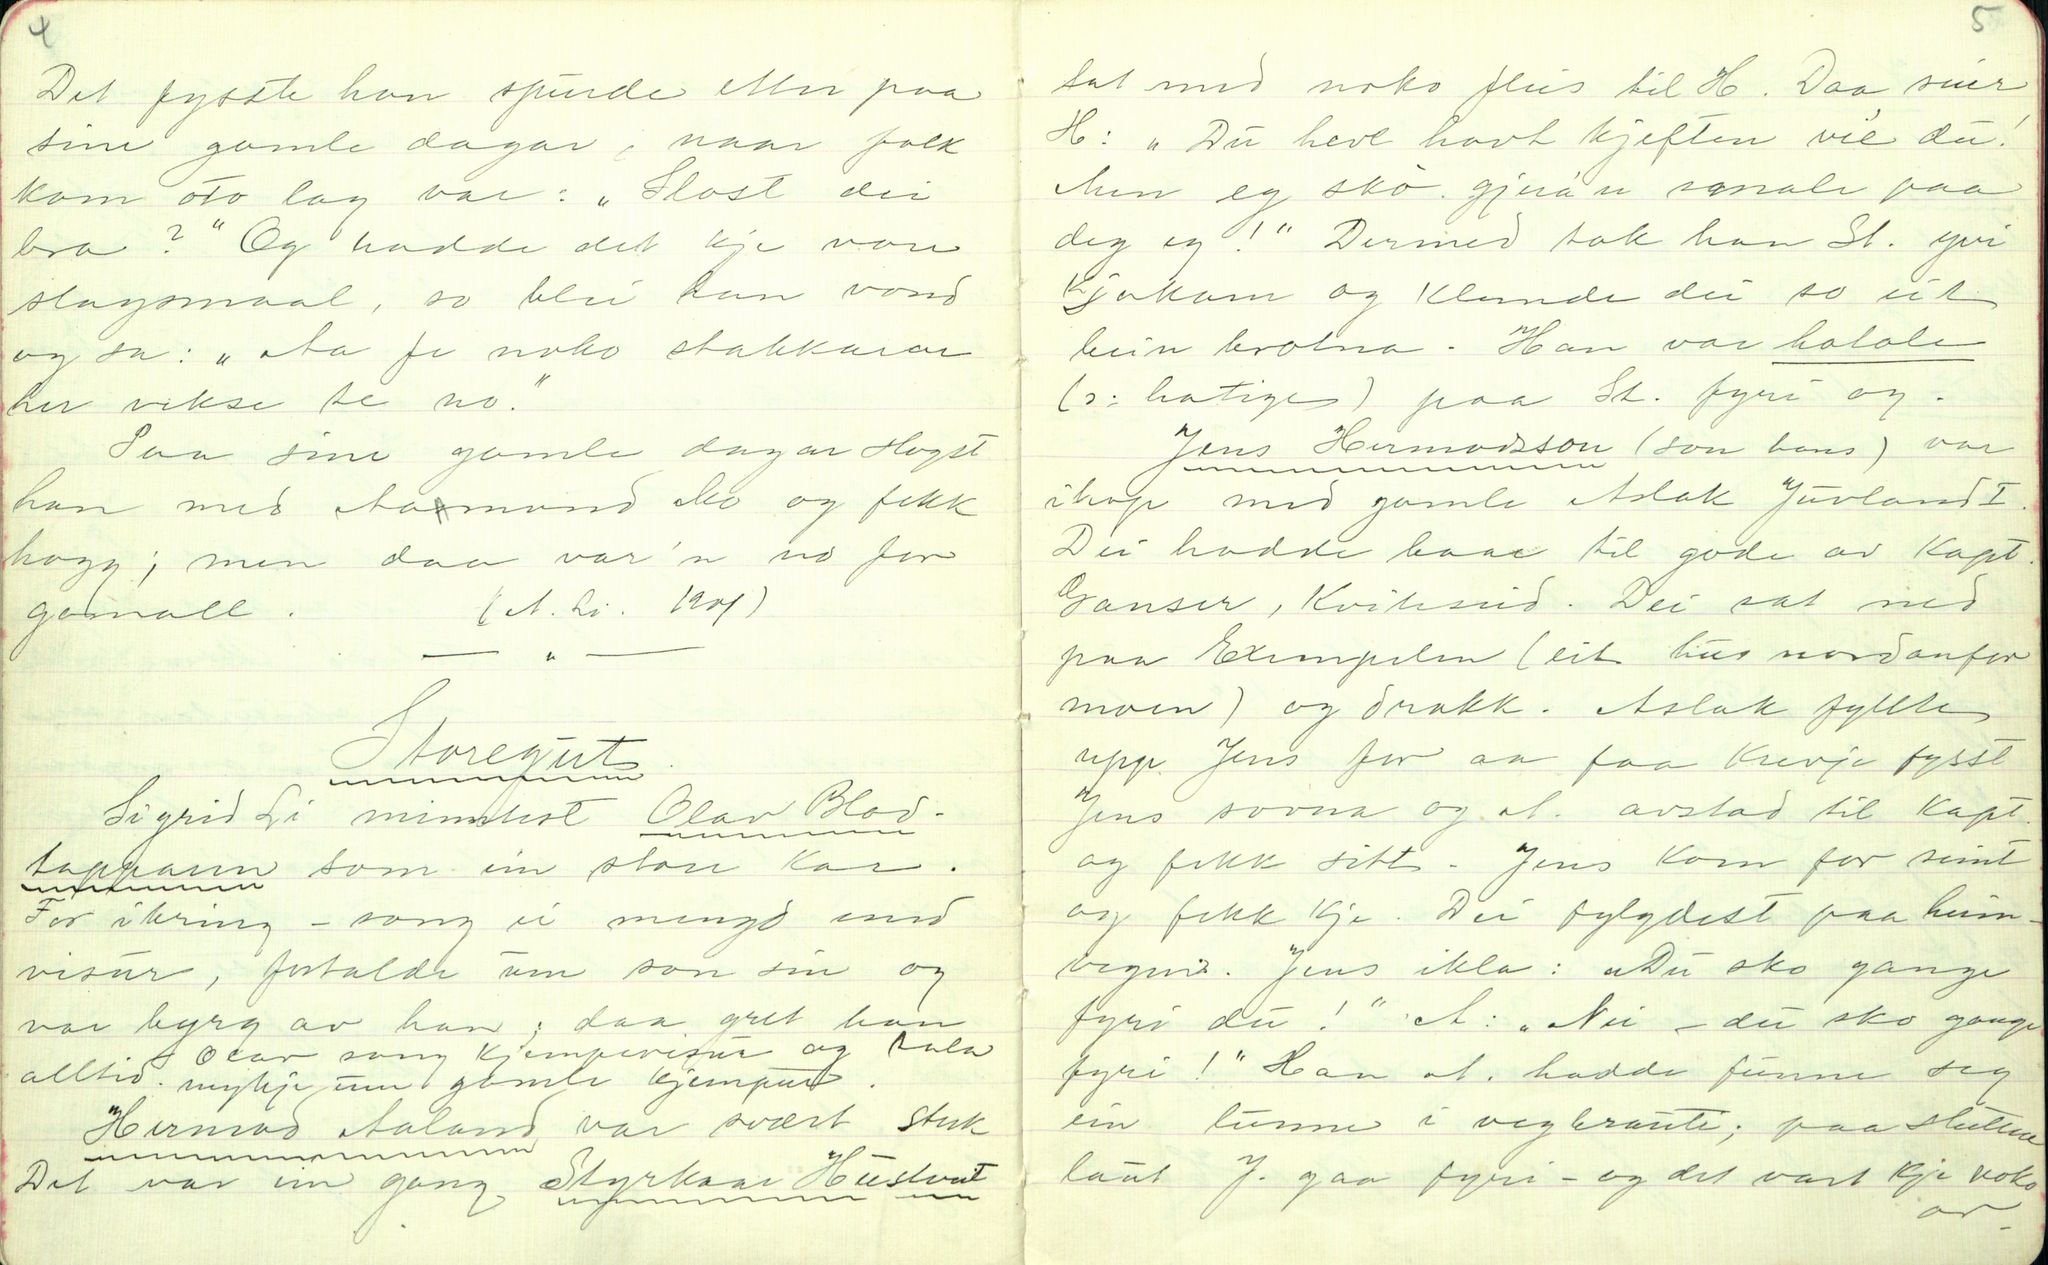 4
Det fysste han spurde etter paa
sine gamle dagar, naar folk
kom oto lag var: "Slost dei
bra?" Og hadde det kje vore
slagsmaal, so blei han vond
og sa: "Aa fe noko stakkarar
her vekse te no."
Paa sine gamle dagar slogst
han med Aasmund Mo og fekk
hogg; men daa var'n no for
gamall. (A. Li. 1909)
— " —
Storegut.
Sigrid Li minntest Olav Blod-
tapparen som ein stor kar.
For ikring – song ei mengd med
visur, fortalde um son sin og
var byrg av han; daa gret han
alltid. Olav song kjempevisur og tala
mykje um gamle kjempur.
Hermod Aaland var svært sterk
Det var ein gong Styrkaar Hustveit
5
sat med noko flis til H. Daa seier
H: "Du heve havt kjeften vie du!
Men eg sko gjera'n smale paa
deg eg!" Dermed tok han St. yvi
kjakam og klemde dei so eit
bein brotna. Han var hatale
(ɔ: hatige) paa St. fyri og.
Jens Hermodsson (son hans) var
ihop med gamle Aslak Juvland I.
Dei hadde baae til gode av Kapt.
Ganser, Kviteseid. Dei sat ned
paa Exempelen (eit hus nordanfor
moen) og drakk. Aslak fyllte
upp Jens for aa faa krevje fysst
Jens sovna og A. avstad til Kapt.
og fekk sitt. Jens kom for seint
og fekk kje. Dei fylgdest paa heim-
vegen. Jens ikla: "Du sko gange
fyri du!" A: "Nei – du sko gange
fyri!" Han A. hadde funne seg
ein lunne i vegkanti; paa slutten
laut J. gaa fyri – og det vart kje noko
av.